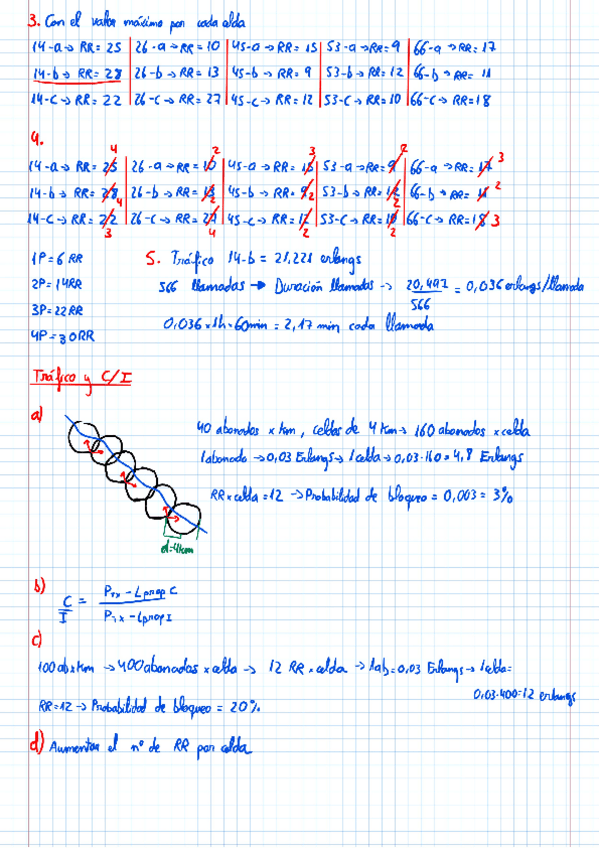 3. Con el valor máximo por cada celda
14-a → RR = 25 | 26-a → RR = 10 | 45-a → RR = 15 | 53-a → RR = 9 | 66-a → RR = 17
14-b → RR = 28 | 26-b → RR = 13 | 45-b → RR = 9 | 53-b → RR = 12 | 66-b → RR = 11
14-c → RR = 22 | 26-c → RR = 27 | 45-c → RR = 12 | 53-c → RR = 10 | 66-c → RR = 18
4.
14-a → RR = 25 4 | 26-a → RR = 10 2 | 45-a → RR = 15 3 | 53-a → RR = 9 2 | 66-a → RR = 17 3
14-b → RR = 28 4 | 26-b → RR = 13 2 | 45-b → RR = 9 2 | 53-b → RR = 12 2 | 66-b → RR = 11 2
14-c → RR = 22 3 | 26-c → RR = 27 4 | 45-c → RR = 12 2 | 53-c → RR = 10 2 | 66-c → RR = 18 3
1P = 6 RR
2P = 14 RR
3P = 22 RR
4P = 30 RR
5. Tráfico 14-b = 21,221 erlangs
566 llamadas → Duración llamadas → 20,491 / 566 = 0,036 erlangs/llamada
0,036 × 1h × 60min = 2,17 min cada llamada
Tráfico y C/I
a)
40 abonados x km, celdas de 4 km → 160 abonados x celda
1 abonado → 0,03 Erlangs → 1 celda → 0,03·160 = 4,8 Erlangs
RR x celda = 12 → Probabilidad de bloqueo = 0,003 = 3%
d=4km
b)
C/I = PTx - Lprop C / PTx - Lprop I
c)
100 ab x km → 400 abonados x celda → 12 RR x celda → 1ab = 0,03 Erlangs → 1 celda =
0,03·400 = 12 erlangs
RR = 12 → Probabilidad de bloqueo = 20%
d) Aumentar el nº de RR por celda